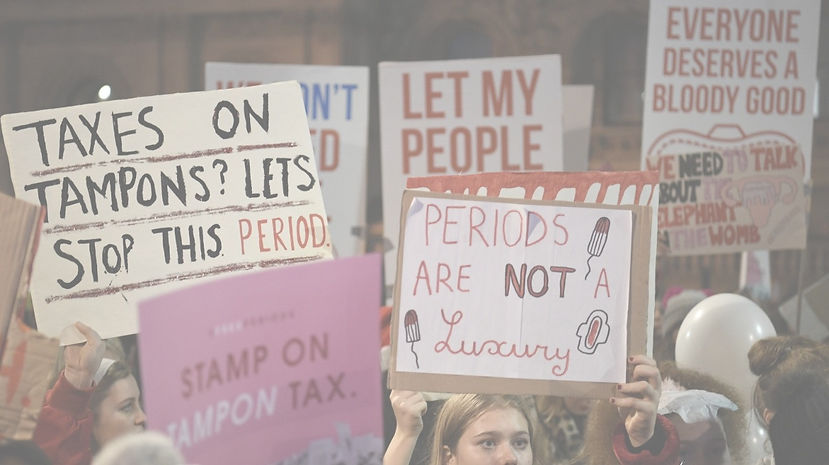 TAXES ON
TAMPONS? LETS
STOP THIS PERIOD.
LET MY
PEOPLE
EVERYONE
DESERVES A
BLOODY GOOD
WE NEED TO TALK
ABOUT THE
ELEPHANT
IN THE WOMB
PERIODS
ARE NOT A
Luxury
PERIODS
STAMP ON
TAMPON TAX.